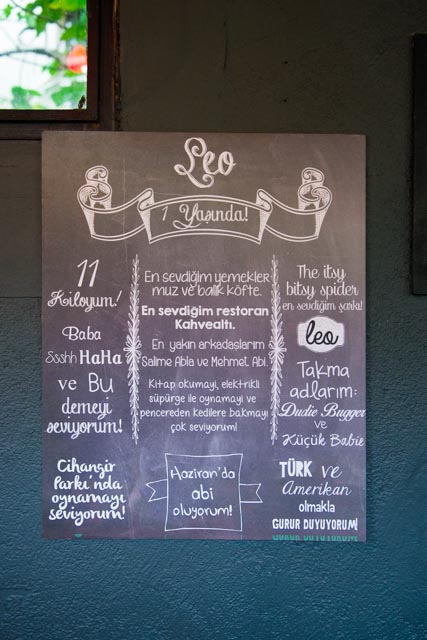 Leo
1 Yaşında!
11
Kiloyum!
Baba
Ssshh HaHa
ve Bu
demeyi
seviyorum!
Cihangir
Parkı'nda
oynamayı
seviyorum!
En sevdiğim yemekler
muz ve balık köfte.
En sevdiğim restoran
Kahvealtı.
En yakın arkadaşlarım
Salime Abla ve Mehmet Abi.
Kitap okumayı, elektrikli
süpürge ile oynamayı ve
pencereden kedilere bakmayı
çok seviyorum!
Haziran'da
abi
oluyorum!
The itsy
bitsy spider
en sevdiğim şarkı!
leo
Takma
adlarım:
Dudie Bugger
ve
Küçük Babie
TÜRK ve
Amerikan
olmakla
GURUR DUYUYORUM!